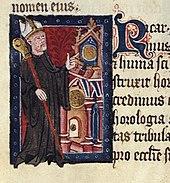 nomen eius.
Ricar
dus
huma sci
struxit hor
credimus e
horologia
tas tribula
pro ecclesi